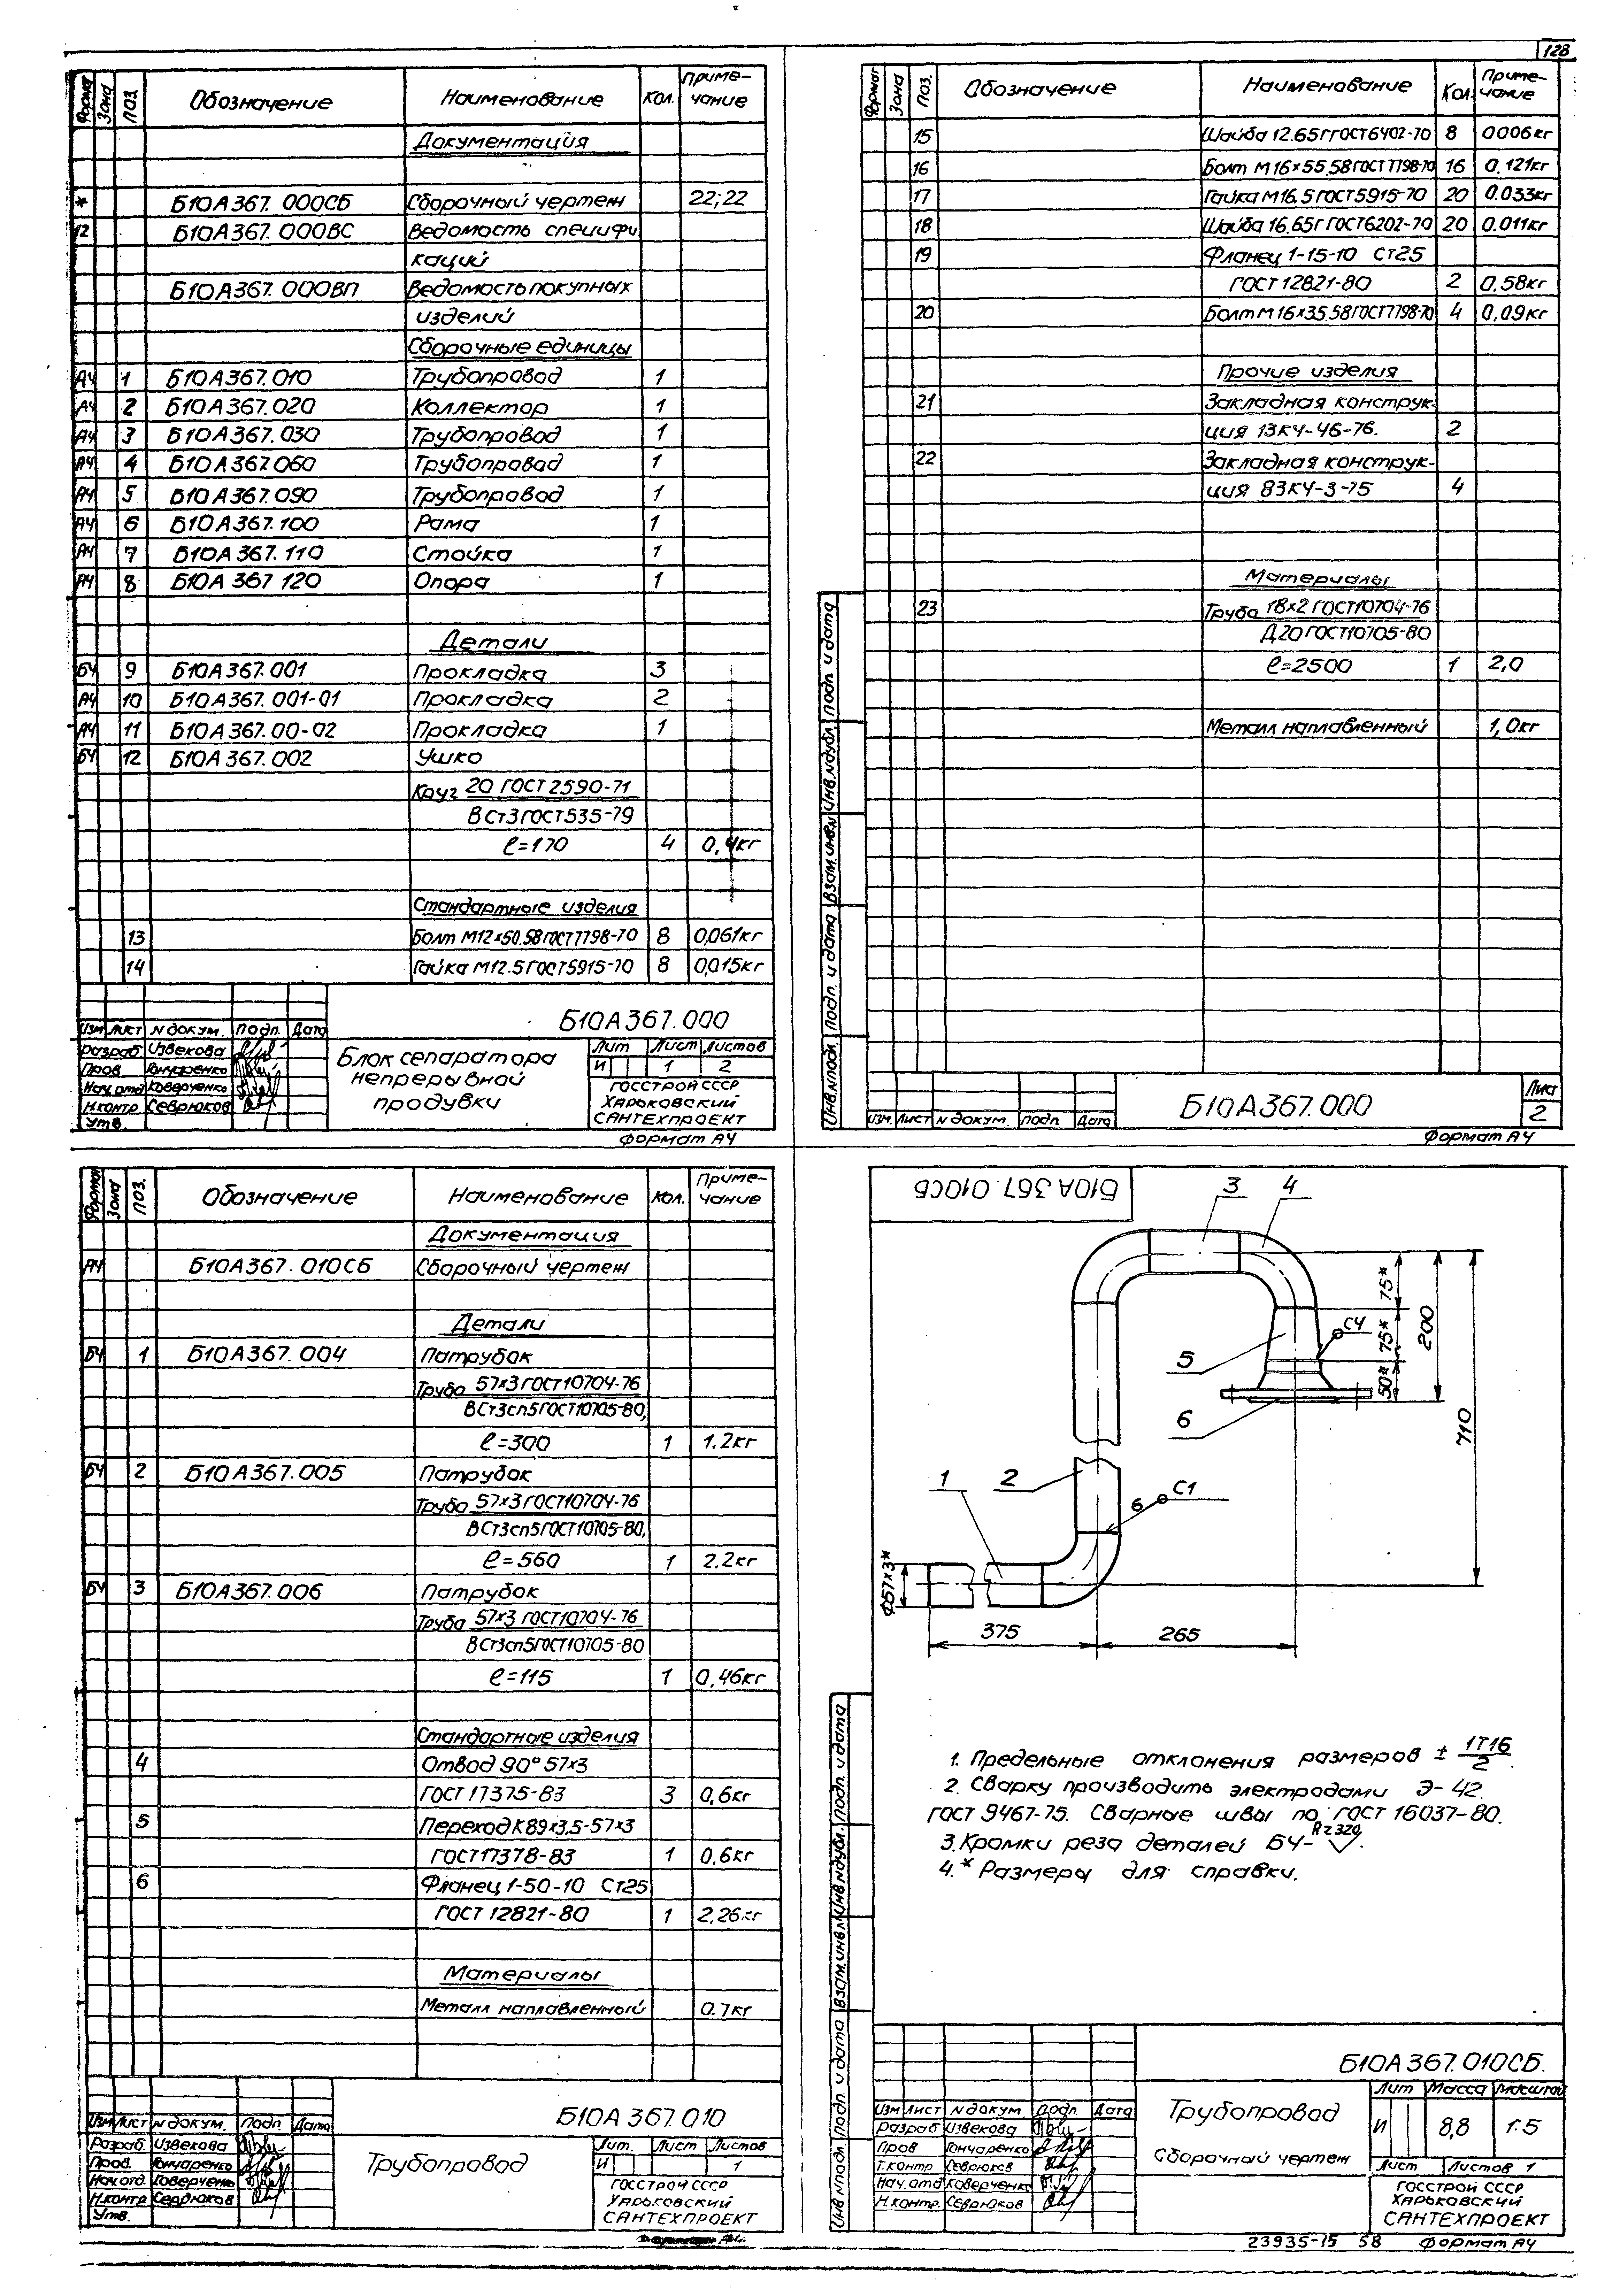 128
Формат Зона Поз. Обозначение Наименование Кол. Приме-
чание
Документация
* Б10А367.000СБ Сборочный чертеж 22;22
12 Б10А367.000ВС Ведомость специфи
каций
Б10А367.000ВП Ведомость покупных
изделий
Сборочные единицы
А4 1 Б10А367.010 Трубопровод 1
А4 2 Б10А367.020 Коллектор 1
А4 3 Б10А367.030 Трубопровод 1
А4 4 Б10А367.060 Трубопровод 1
А4 5 Б10А367.090 Трубопровод 1
А4 6 Б10А367.100 Рама 1
А4 7 Б10А367.110 Стойка 1
А4 8 Б10А 367 120 Опора 1
Детали
БЧ 9 Б10А367.001 Прокладка 3
А4 10 Б10А367.001-01 Прокладка 2
А4 11 Б10А367.00-02 Прокладка 1
БЧ 12 Б10А367.002 Ушко
Круг 20 ГОСТ 2590-71
ВСт3ГОСТ535-79
ℓ=170 4 0,4кг
Стандартные изделия
13 Болт М12×50.58ГОСТ7798-70 8 0,061кг
14 Гайка М12.5ГОСТ5915-70 8 0,015кг
Б10А367.000
Изм Лист N докум. Подп. Дата
Разраб Извекова
Пров Гончаренко
Нач.отд Коверченко
Н.контр Севрюков
Утв.
Блок сепаратора
непрерывной
продувки
Лит Лист Листов
И 1 2
ГОССТРОЙ СССР
ХАРЬКОВСКИЙ
САНТЕХПРОЕКТ
Формат А4
Формат Зона Поз. Обозначение Наименование Кол. Приме-
чание
15 Шайба 12.65ГГОСТ6402-70 8 0006кг
16 Болт М16×55.58ГОСТ7798-70 16 0.121кг
17 Гайка М16.5ГОСТ5915-70 20 0.033кг
18 Шайба 16.65Г ГОСТ6202-70 20 0.011кг
19 Фланец 1-15-10 Ст25
ГОСТ 12821-80 2 0,58кг
20 Болт М16×35.58ГОСТ7798-70 4 0,09кг
Прочие изделия
21 Закладная конструк-
ция 13КЧ-46-76. 2
22 Закладная конструк-
ция 83КЧ-3-75 4
Материалы
23 Труба 18×2 ГОСТ10704-76
Д20ГОСТ10705-80
ℓ=2500 1 2,0
Металл наплавленный 1,0кг
Инв.Nподл. Подп. и дата Взам.инв.N Инв.Nдубл. Подп. и дата
Изм. Лист N докум. Подп. Дата
Б10А367.000
Лист
2
Формат А4
Формат Зона Поз. Обозначение Наименование Кол. Приме-
чание
Документация
А4 Б10А367.010СБ Сборочный чертеж
Детали
БЧ 1 Б10А367.004 Патрубок
Труба 57×3 ГОСТ10704-76
ВСт3сп5ГОСТ10705-80,
ℓ=300 1 1.2кг
БЧ 2 Б10А367.005 Патрубок
Труба 57×3 ГОСТ10704-76
ВСт3сп5ГОСТ10705-80,
ℓ=560 1 2.2кг
БЧ 3 Б10А367.006 Патрубок
Труба 57×3 ГОСТ10704-76
ВСт3сп5ГОСТ10705-80
ℓ=115 1 0,46кг
Стандартные изделия
4 Отвод 90° 57×3
ГОСТ 17375-83 3 0,6кг
5 Переход К89×3,5-57×3
ГОСТ17378-83 1 0,6кг
6 Фланец 1-50-10 Ст25
ГОСТ 12821-80 1 2,26кг
Материалы
Металл наплавленный 0.7кг
Б10А367.010
Изм Лист N докум. Подп. Дата
Разраб. Извекова
Пров. Гончаренко
Нач.отд. Коверченко
Н.контр Севрюков
Утв.
Трубопровод
Лит. Лист Листов
И 1
ГОССТРОЙ СССР
ХАРЬКОВСКИЙ
САНТЕХПРОЕКТ
Формат А4
Б10А367.010СБ
3 4
75*
С4
75*
200
5
50*
6
710
1 2 6 С1
Ф57×3*
375 265
1. Предельные отклонения размеров ± IT16/2
2. Сварку производить электродами Э-42
ГОСТ 9467-75. Сварные швы по ГОСТ 16037-80.
3. Кромки реза деталей БЧ- Rz320.
4.* Размеры для справки.
Инв.Nподл. Подп. и дата Взам.инв.N Инв.Nдубл. Подп. и дата
Б10А367.010СБ.
Изм Лист N докум Подп. Дата
Разраб Извекова
Пров Гончаренко
Т.контр Севрюков
Нач.отд Коверченко
Н.контр. Севрюков
Трубопровод
Сборочный чертеж
Лит Масса Масштаб
И 8,8 1:5
Лист Листов 1
ГОССТРОЙ СССР
ХАРЬКОВСКИЙ
САНТЕХПРОЕКТ
23935-15 58 Формат А4